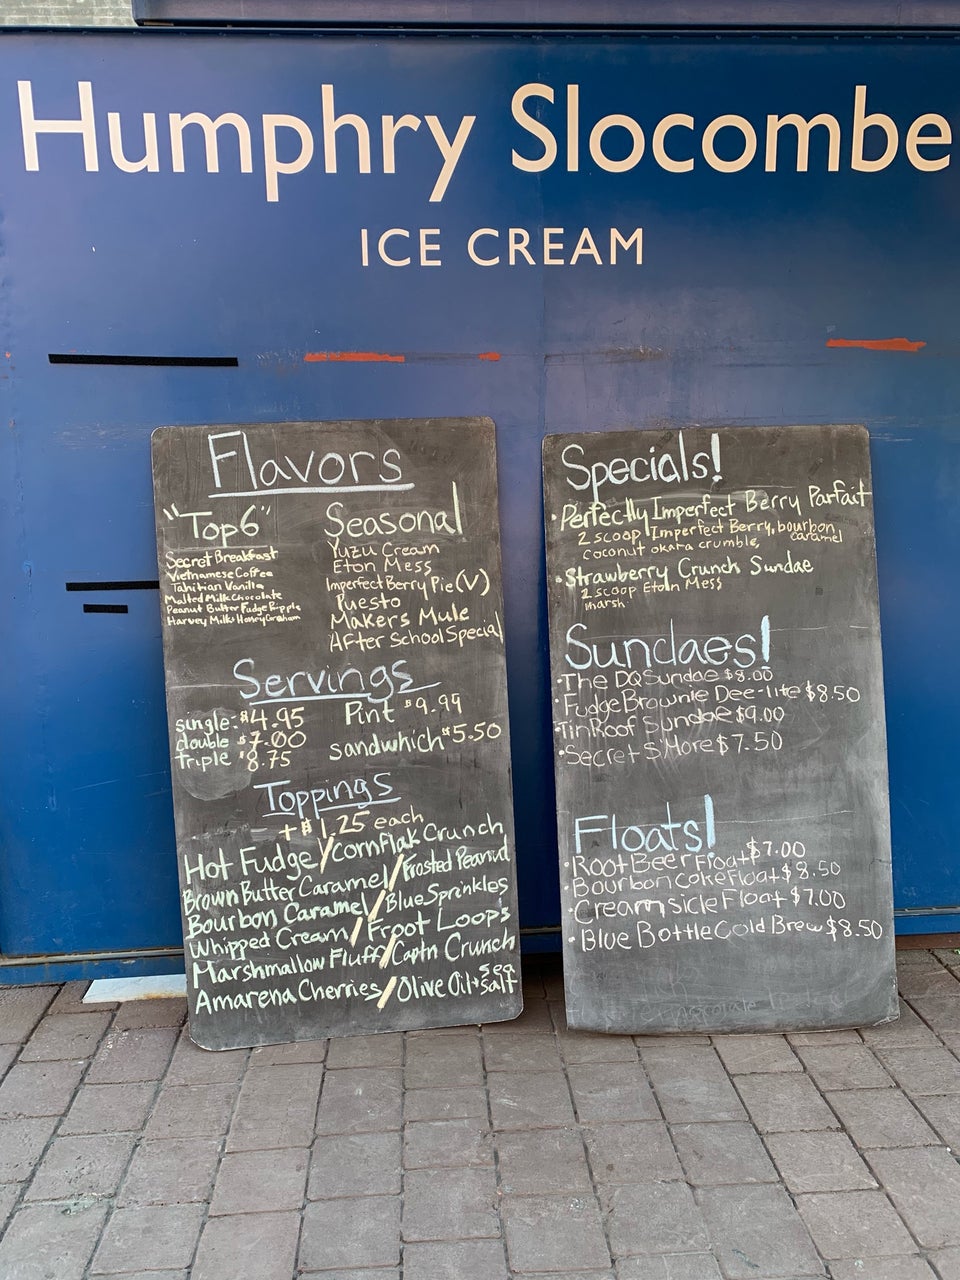 Humphry Slocombe
ICE CREAM
Flavors
"Top6"
Secret Breakfast
Vietnamese Coffee
Tahitian Vanilla
Malted Milk Chocolate
Peanut Butter Fudge Ripple
Harvey Milk + Honey Graham
Seasonal
Yuzu Cream
Eton Mess
Imperfect Berry Pie (V)
Puesto
Makers Mule
After School Special
Servings
single-$4.95
double $7.00
triple $8.75
Pint $9.99
sandwhich $5.50
Toppings
+$1.25 each
Hot Fudge/Cornflak Crunch
Brown Butter Caramel/Frosted Peanut
Bourbon Caramel/Blue Sprinkles
Whipped Cream/Froot Loops
Marshmallow Fluff/Captn Crunch
Amarena Cherries/Olive Oil + sea salt
Specials!
• Perfectly Imperfect Berry Parfait
2 scoop Imperfect Berry, bourbon caramel
coconut okara crumble,
• Strawberry Crunch Sundae
2 scoop Eton Mess
marsh
Sundaes!
• The DQ Sundae $8.00
• Fudge Brownie Dee-lite $8.50
• Tin Roof Sundae $9.00
• Secret S'More $7.50
Floats!
• Root Beer Float $7.00
• Bourbon Coke Float $8.50
• Creamsicle Float $7.00
• Blue Bottle Cold Brew $8.50